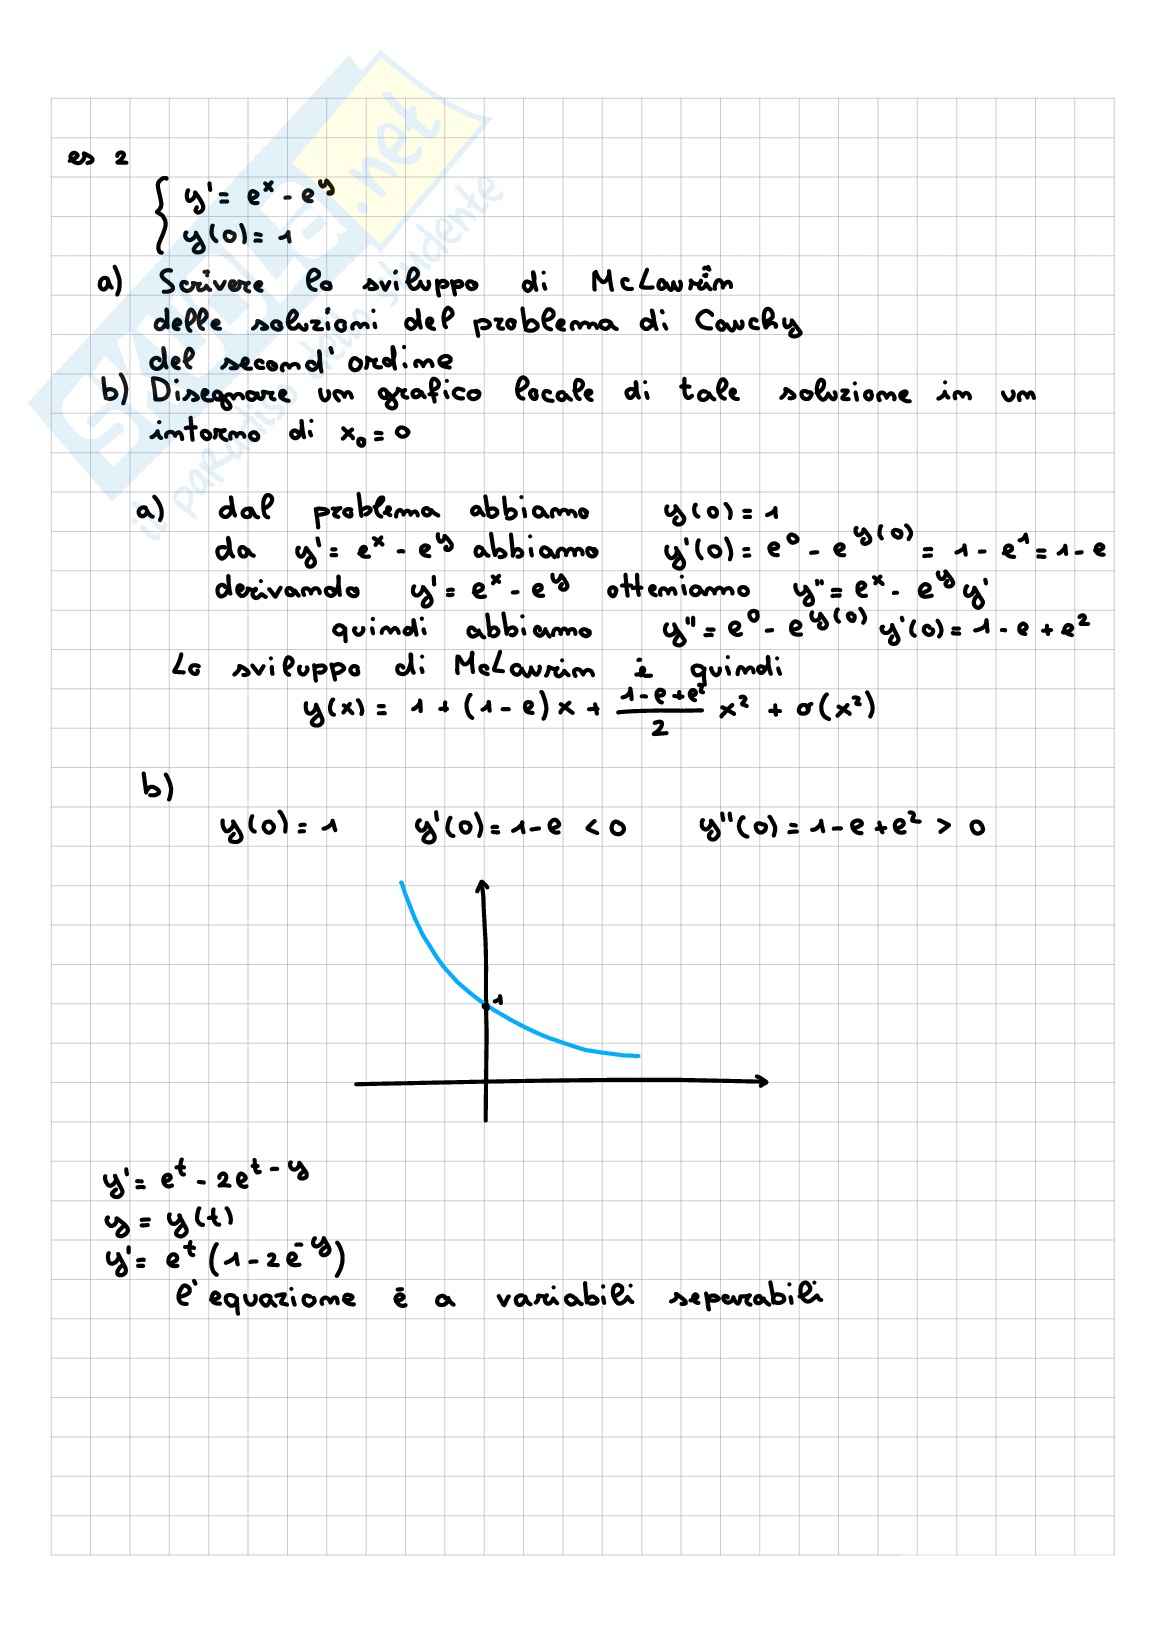 es 2
{ y' = e^x - e^y
y(0) = 1
a) Scrivere lo sviluppo di McLaurin
delle soluzioni del problema di Cauchy
del second'ordine
b) Disegnare un grafico locale di tale soluzione in un
intorno di x₀ = 0
a) dal problema abbiamo y(0) = 1
da y' = e^x - e^y abbiamo y'(0) = e^0 - e^y(0) = 1 - e^1 = 1 - e
derivando y' = e^x - e^y otteniamo y'' = e^x - e^y y'
quindi abbiamo y'' = e^0 - e^y(0) y'(0) = 1 - e + e^2
Lo sviluppo di McLaurin è quindi
y(x) = 1 + (1 - e) x + (1 - e + e^2)/2 x^2 + o(x^2)
b)
y(0) = 1 y'(0) = 1 - e < 0 y''(0) = 1 - e + e^2 > 0
1
y' = e^t - 2e^(t-y)
y = y(t)
y' = e^t (1 - 2e^-y)
l'equazione è a variabili separabili
SKUOLA.net
il paradiso dello studente